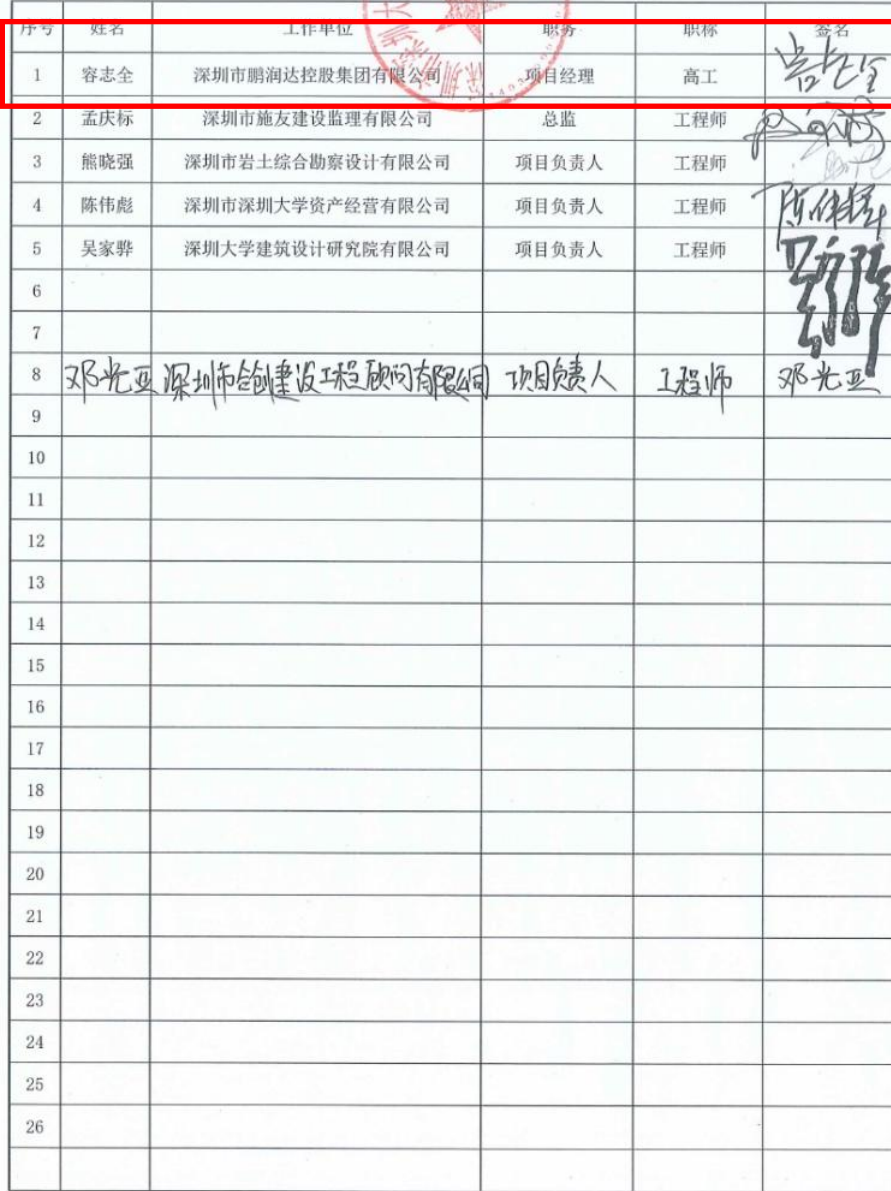 序号 姓名 工作单位 职务 职称 签名
1 容志全 深圳市鹏润达控股集团有限公司 项目经理 高工
2 孟庆标 深圳市施友建设监理有限公司 总监 工程师
3 熊晓强 深圳市岩土综合勘察设计有限公司 项目负责人 工程师
4 陈伟彪 深圳市深圳大学资产经营有限公司 项目负责人 工程师
5 吴家骅 深圳大学建筑设计研究院有限公司 项目负责人 工程师
6
7
8 邓光亚 深圳市合创建设工程顾问有限公司 项目负责人 工程师 邓光亚
9
10
11
12
13
14
15
16
17
18
19
20
21
22
23
24
25
26